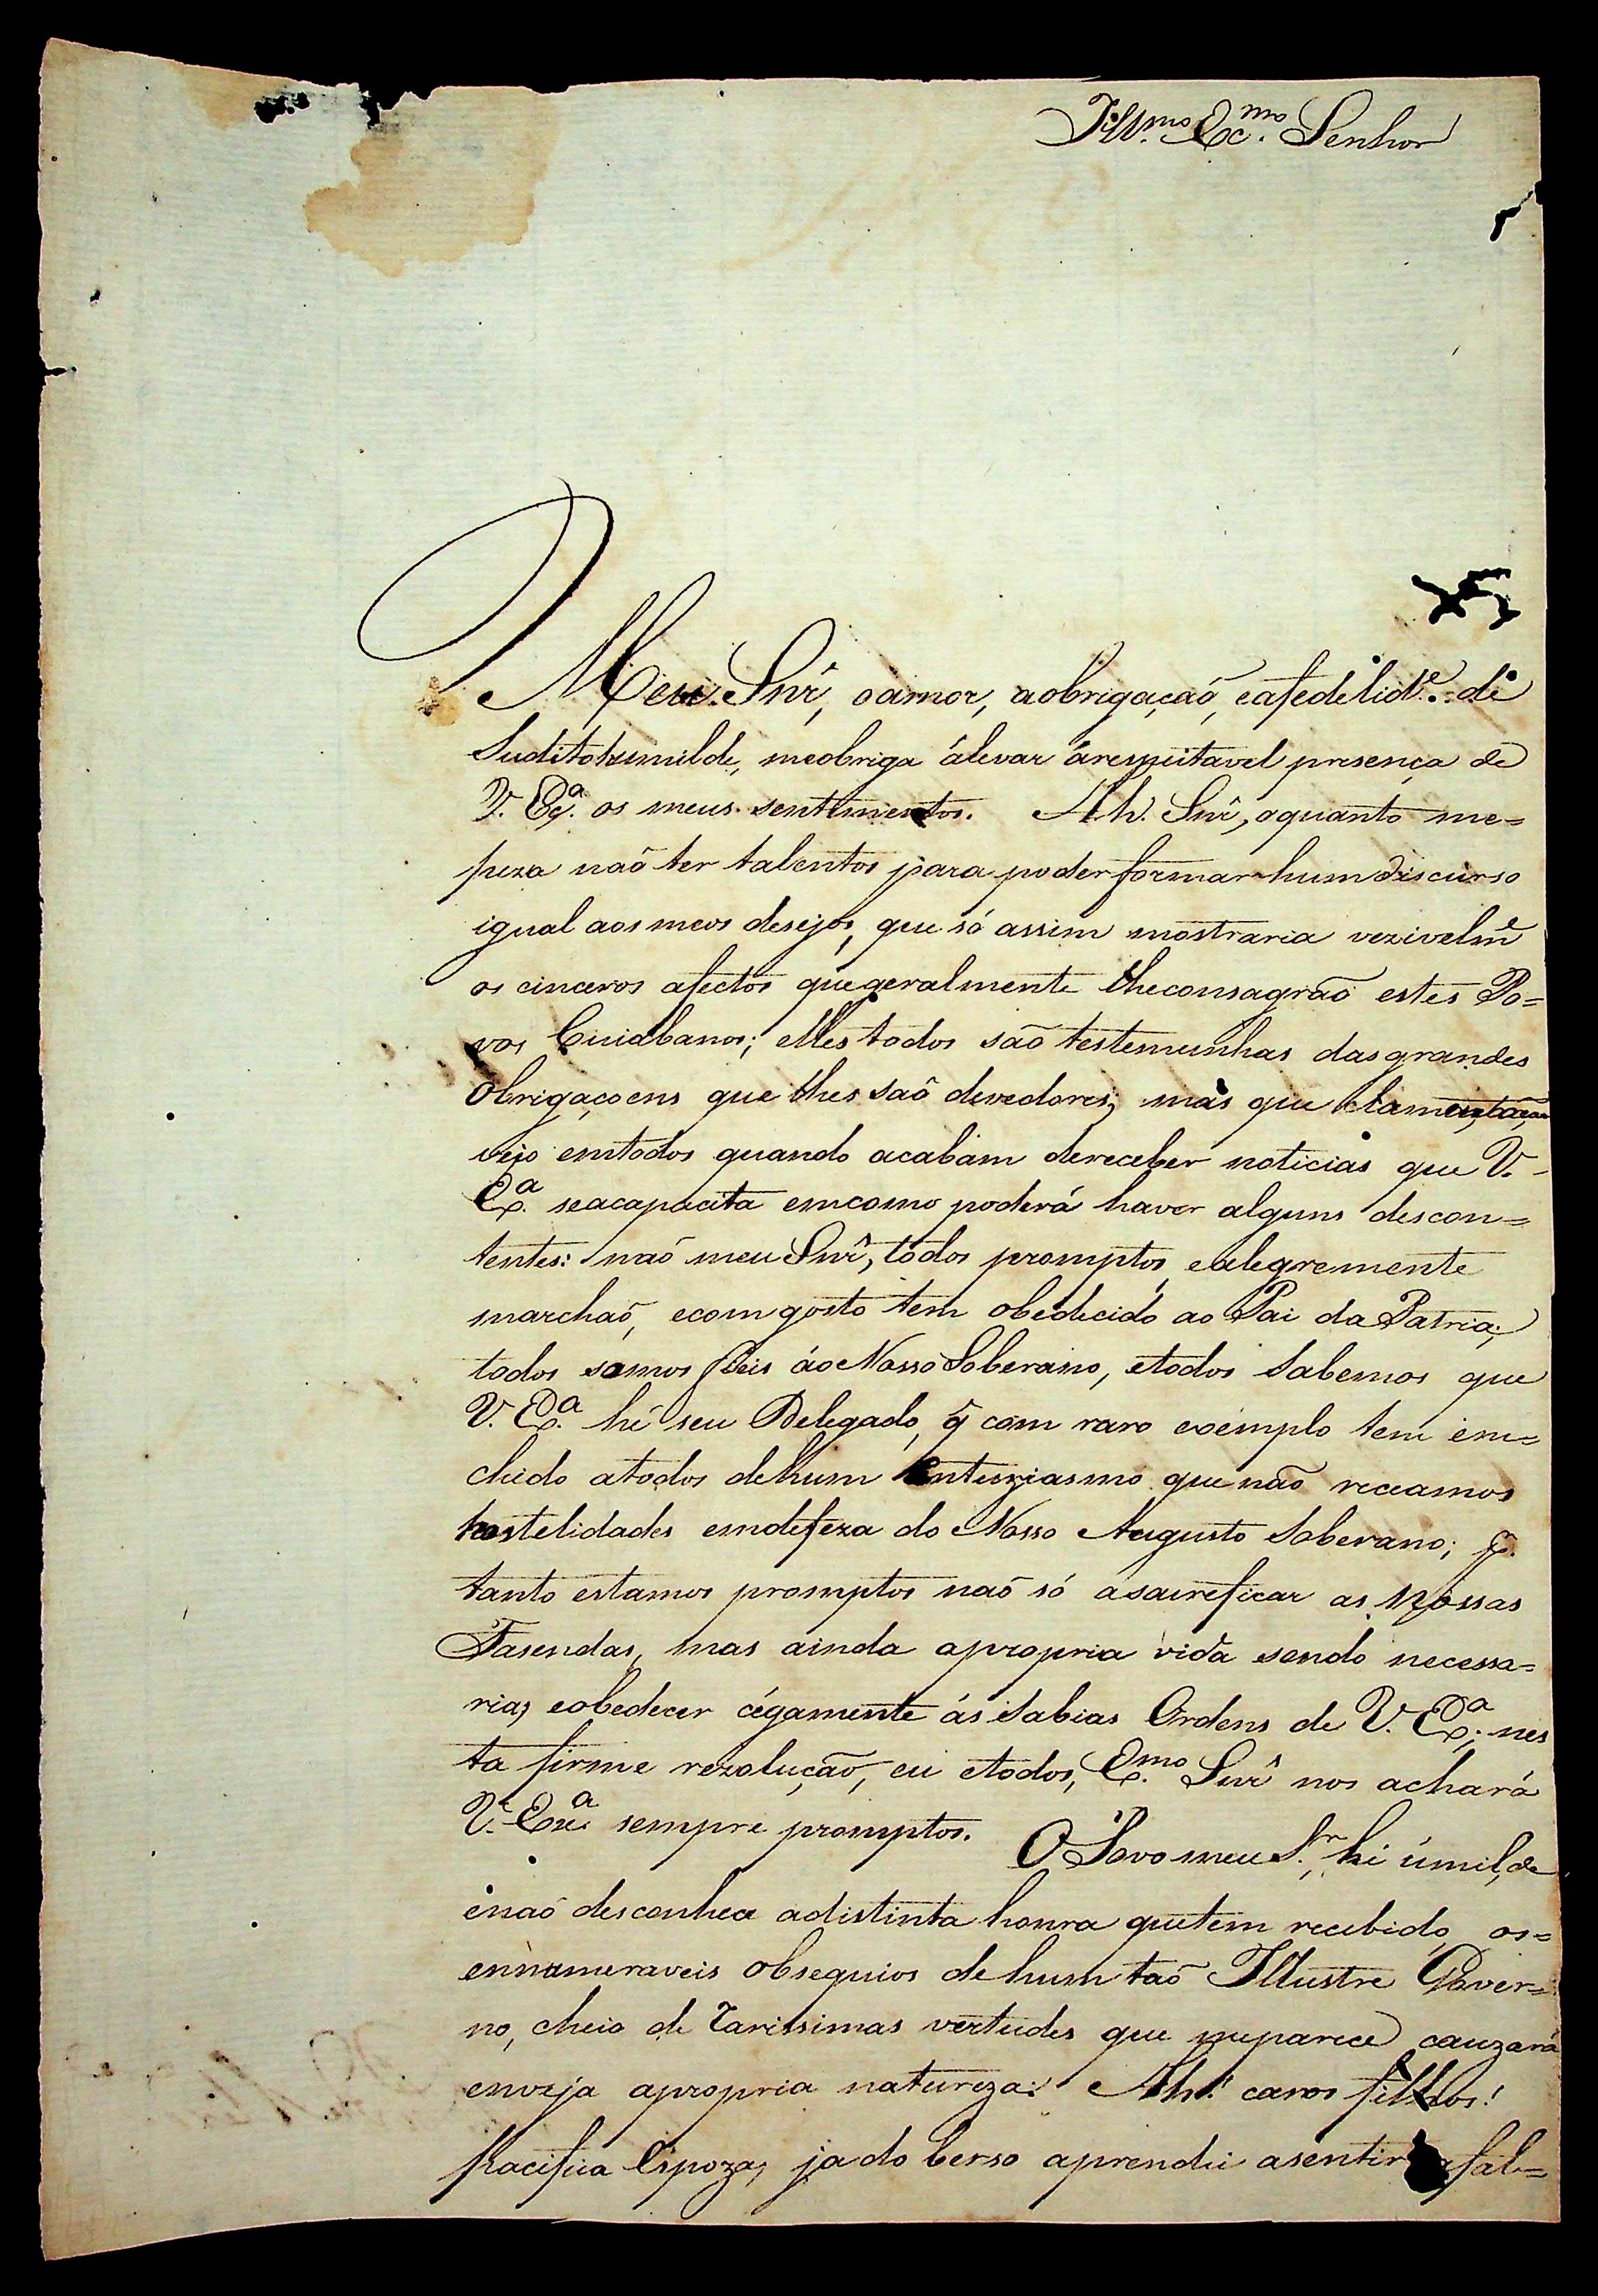 Ill.mo Ex.mo Senhor
Meu Snr̃, oamor, aobrigaçaõ, eafedelid.e de
Suditohumilde, meobriga álevar árespeitavel presença de
V. Ex.a os meus sentimentos. Ah. Snr̃, oquanto me=
peza naõ ter talentos para poderformar hum discurso
igual aos meos desejos, que só assim mostraria vezivelm.e
os cinceros afectos quegeralmente lheconsagraõ estes Po=
vos Cuiabanos; elles todos saõ testemunhas dasgrandes
obrigaçoens que lhes saõ devedores; mas que lamentaçaõ
vejo emtodos quando acabam dereceber noticias que V.
Ex.a seacapacita emcomo poderá haver alguns descon=
tentes: naõ meu Snr̃, todos promptos, ealegremente
marchaõ, ecomgosto tem obedecido ao Pai da Patria;
todos somos fieis áo Nosso Soberano, etodos Sabemos que
V. Ex.a hé seu Delegado, q̃ com raro exemplo tem em=
chido atodos dehum Enteuziasmo quenão receamos
hostelidades emdefeza do Nosso Augusto Soberano; p.
tanto estamos promptos naõ só asacreficar as Nossas
Fasendas, mas ainda apropria vida sendo necessa=
ria, eobedecer cégamente ás Sabias Ordens de V. Ex.a; nes
ta firme rezoluçaõ, eu etodos, Ex.mo Snr̃ nos achará
V. Exa. sempre promptos. O Povo meu S.r, hé úmilde
enaõ desconhece adistinta honra quetem recebido, os=
ennumeraveis obsequios dehum taõ Illustre Gover=
no, cheio de rarissimas vertudes que meparece cauzará
enveja apropria natureza: Ah! caros filhos!
Pacifica Espoza, jado berso aprendei asentir afal=